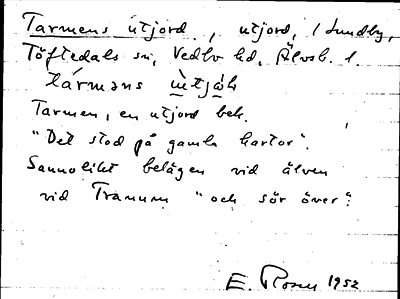 Tarmens utjord, utjord, i Lundby,
Töftedals sn, Vedbo hd, Älvsb. l.
tármans ùtjὼɷ
Tarmen, en utjord bek.
"Det stod på gamla kartor".
Sannolikt belägen vid älven
vid Tranum "och sör över".
E. Rosen 1952